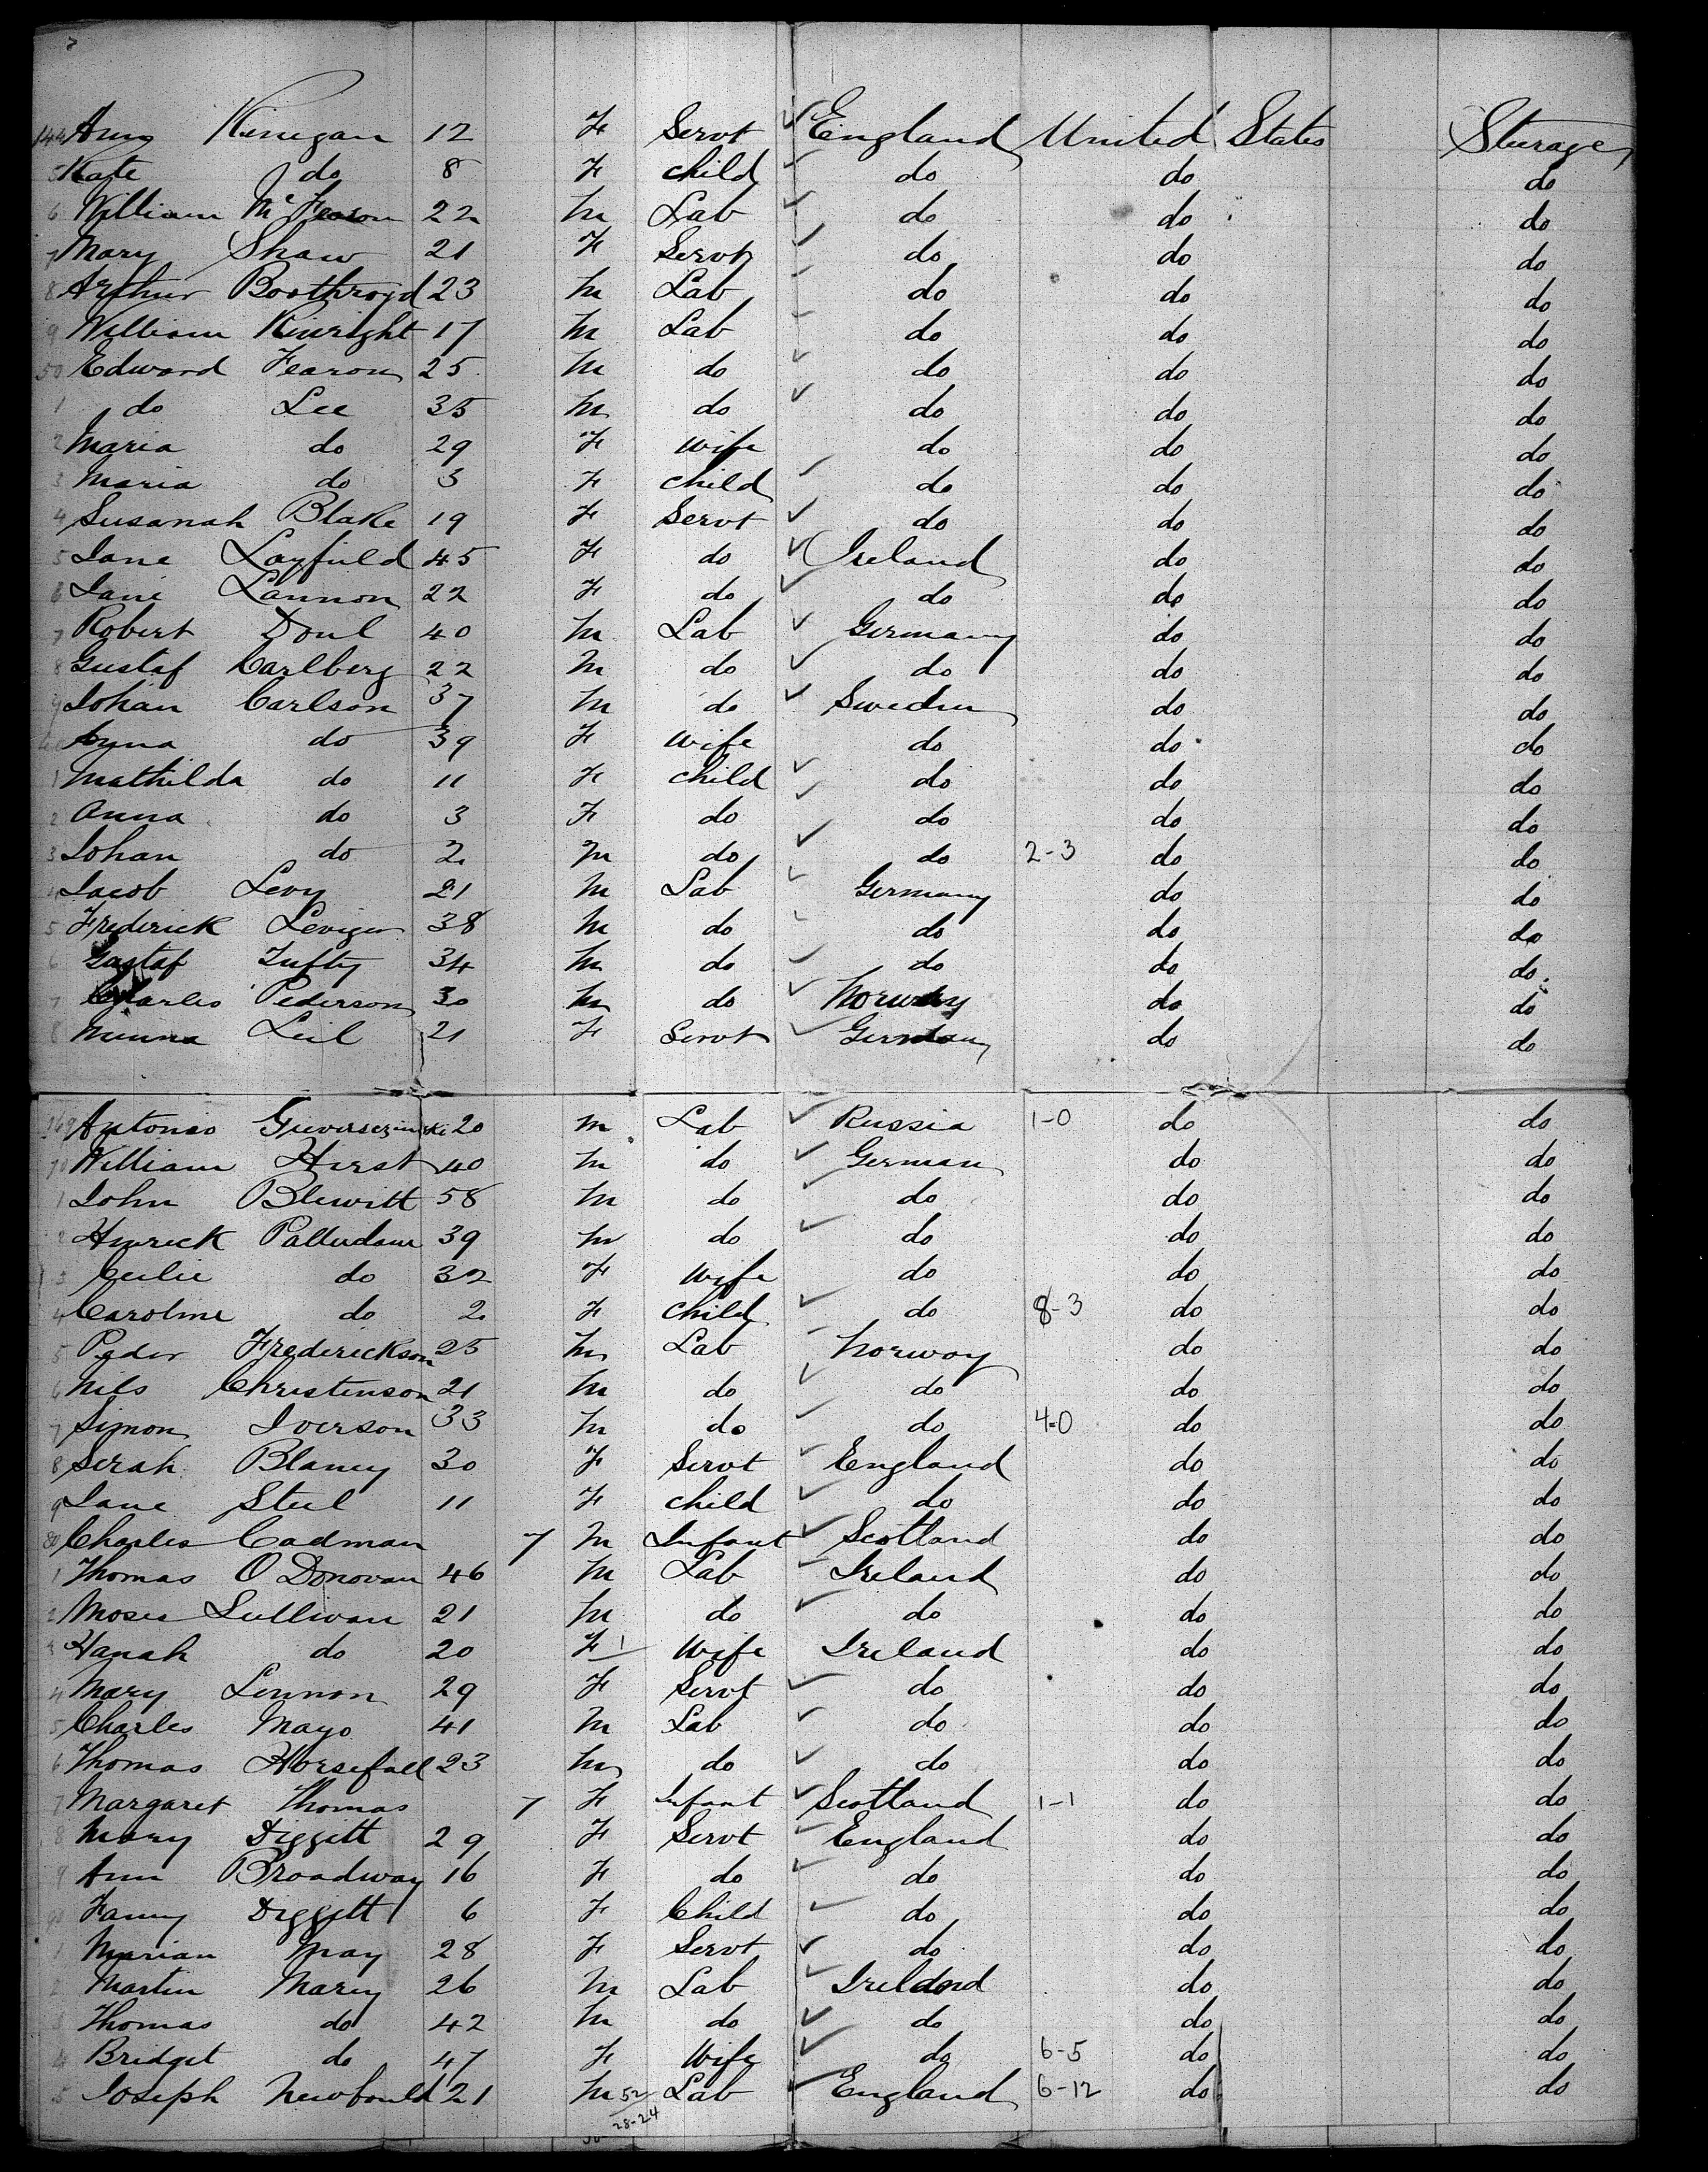 144 Amy Kinegan 12 F Servt ✓ England United States Steerage
5 Kate do 8 F child ✓ do do do
6 William McFearon 22 M Lab ✓ do do do
7 Mary Shaw 21 F Servt ✓ do do do
8 Arthur Boothroyd 23 M Lab ✓ do do do
9 William Kinright 17 M Lab ✓ do do do
50 Edward Fearon 25 M do ✓ do do do
1 do Lee 35 M do ✓ do do do
2 Maria do 29 F Wife do do do
3 Maria do 3 F child ✓ do do do
4 Susanah Blake 19 F Servt ✓ do do do
5 Jane Layfield 45 F do ✓ Ireland do do
6 Jane Lannon 22 F do ✓ do do do
7 Robert Doul 40 M Lab ✓ Germany do do
8 Gustaf Carlberg 22 M do ✓ do do do
9 Johan Carlson 37 M do ✓ Sweden do do
60 do 39 F Wife do do do
1 Mathilda do 11 F child ✓ do do do
2 Anna do 3 F do ✓ do do do
3 Johan do 2 M do ✓ do 2-3 do do
4 Jacob Levy 21 M Lab ✓ Germany do do
5 Frederick 38 M do ✓ do do do
6 Gustaf Tufty 34 M do ✓ do do do
7 Charles Pederson 30 M do ✓ Norway do do
8 Minna Leil 21 F Servt ✓ German do do
169 Antonas 20 M Lab ✓ Russia 1-0 do do
70 William Hirst 40 M do ✓ German do do
1 John Blewitt 58 M do ✓ do do do
2 Hinrick Palludan 39 M do ✓ do do do
3 Cecilie do 32 F Wife do do do
4 Caroline do 2 F child ✓ do 8-3 do do
5 Peder Frederickson 25 M Lab ✓ Norway do do
6 Nils Christenson 21 M do ✓ do do do
7 Simon Iverson 33 M do ✓ do 4-0 do do
8 Serah Blaney 30 F Servt ✓ England do do
9 Jane Steel 11 F child ✓ do do do
80 Charles Cadman 7 M Infant ✓ Scotland do do
1 Thomas O Donovan 46 M Lab ✓ Ireland do do
2 Moses Sullivan 21 M do ✓ do do do
3 Hanah do 20 F 1 Wife Ireland do do
4 Mary Lennon 29 F Servt ✓ do do do
5 Charles Mayo 41 M Lab ✓ do do do
6 Thomas Horsefall 23 M do ✓ do do do
7 Margaret Thomas 7 F Infant ✓ Scotland 1-1 do do
8 Mary Diggitt 29 F Servt ✓ England do do
9 Ann Broadway 16 F do ✓ do do do
90 Fanny Diggitt 6 F Child ✓ do do do
1 Marian May 28 F Servt ✓ do do do
2 Martin Marey 26 M Lab ✓ Ireland do do
3 Thomas do 42 M do ✓ do do do
4 Bridget do 47 F Wife ✓ do 6-5 do do
5 Joseph Newbould 21 M 52 Lab ✓ England 6-12 do do
28-24